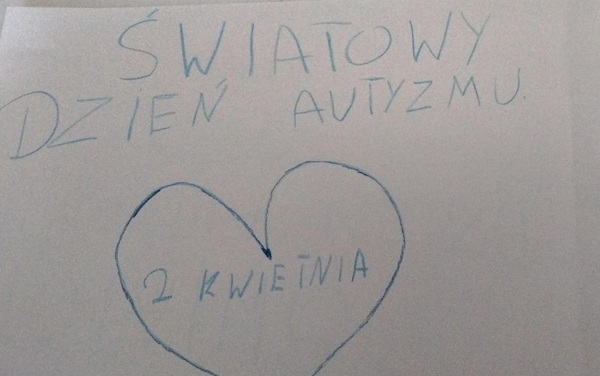 ŚWIATOWY
DZIEŃ AUTYZMU.
2 KWIETNIA